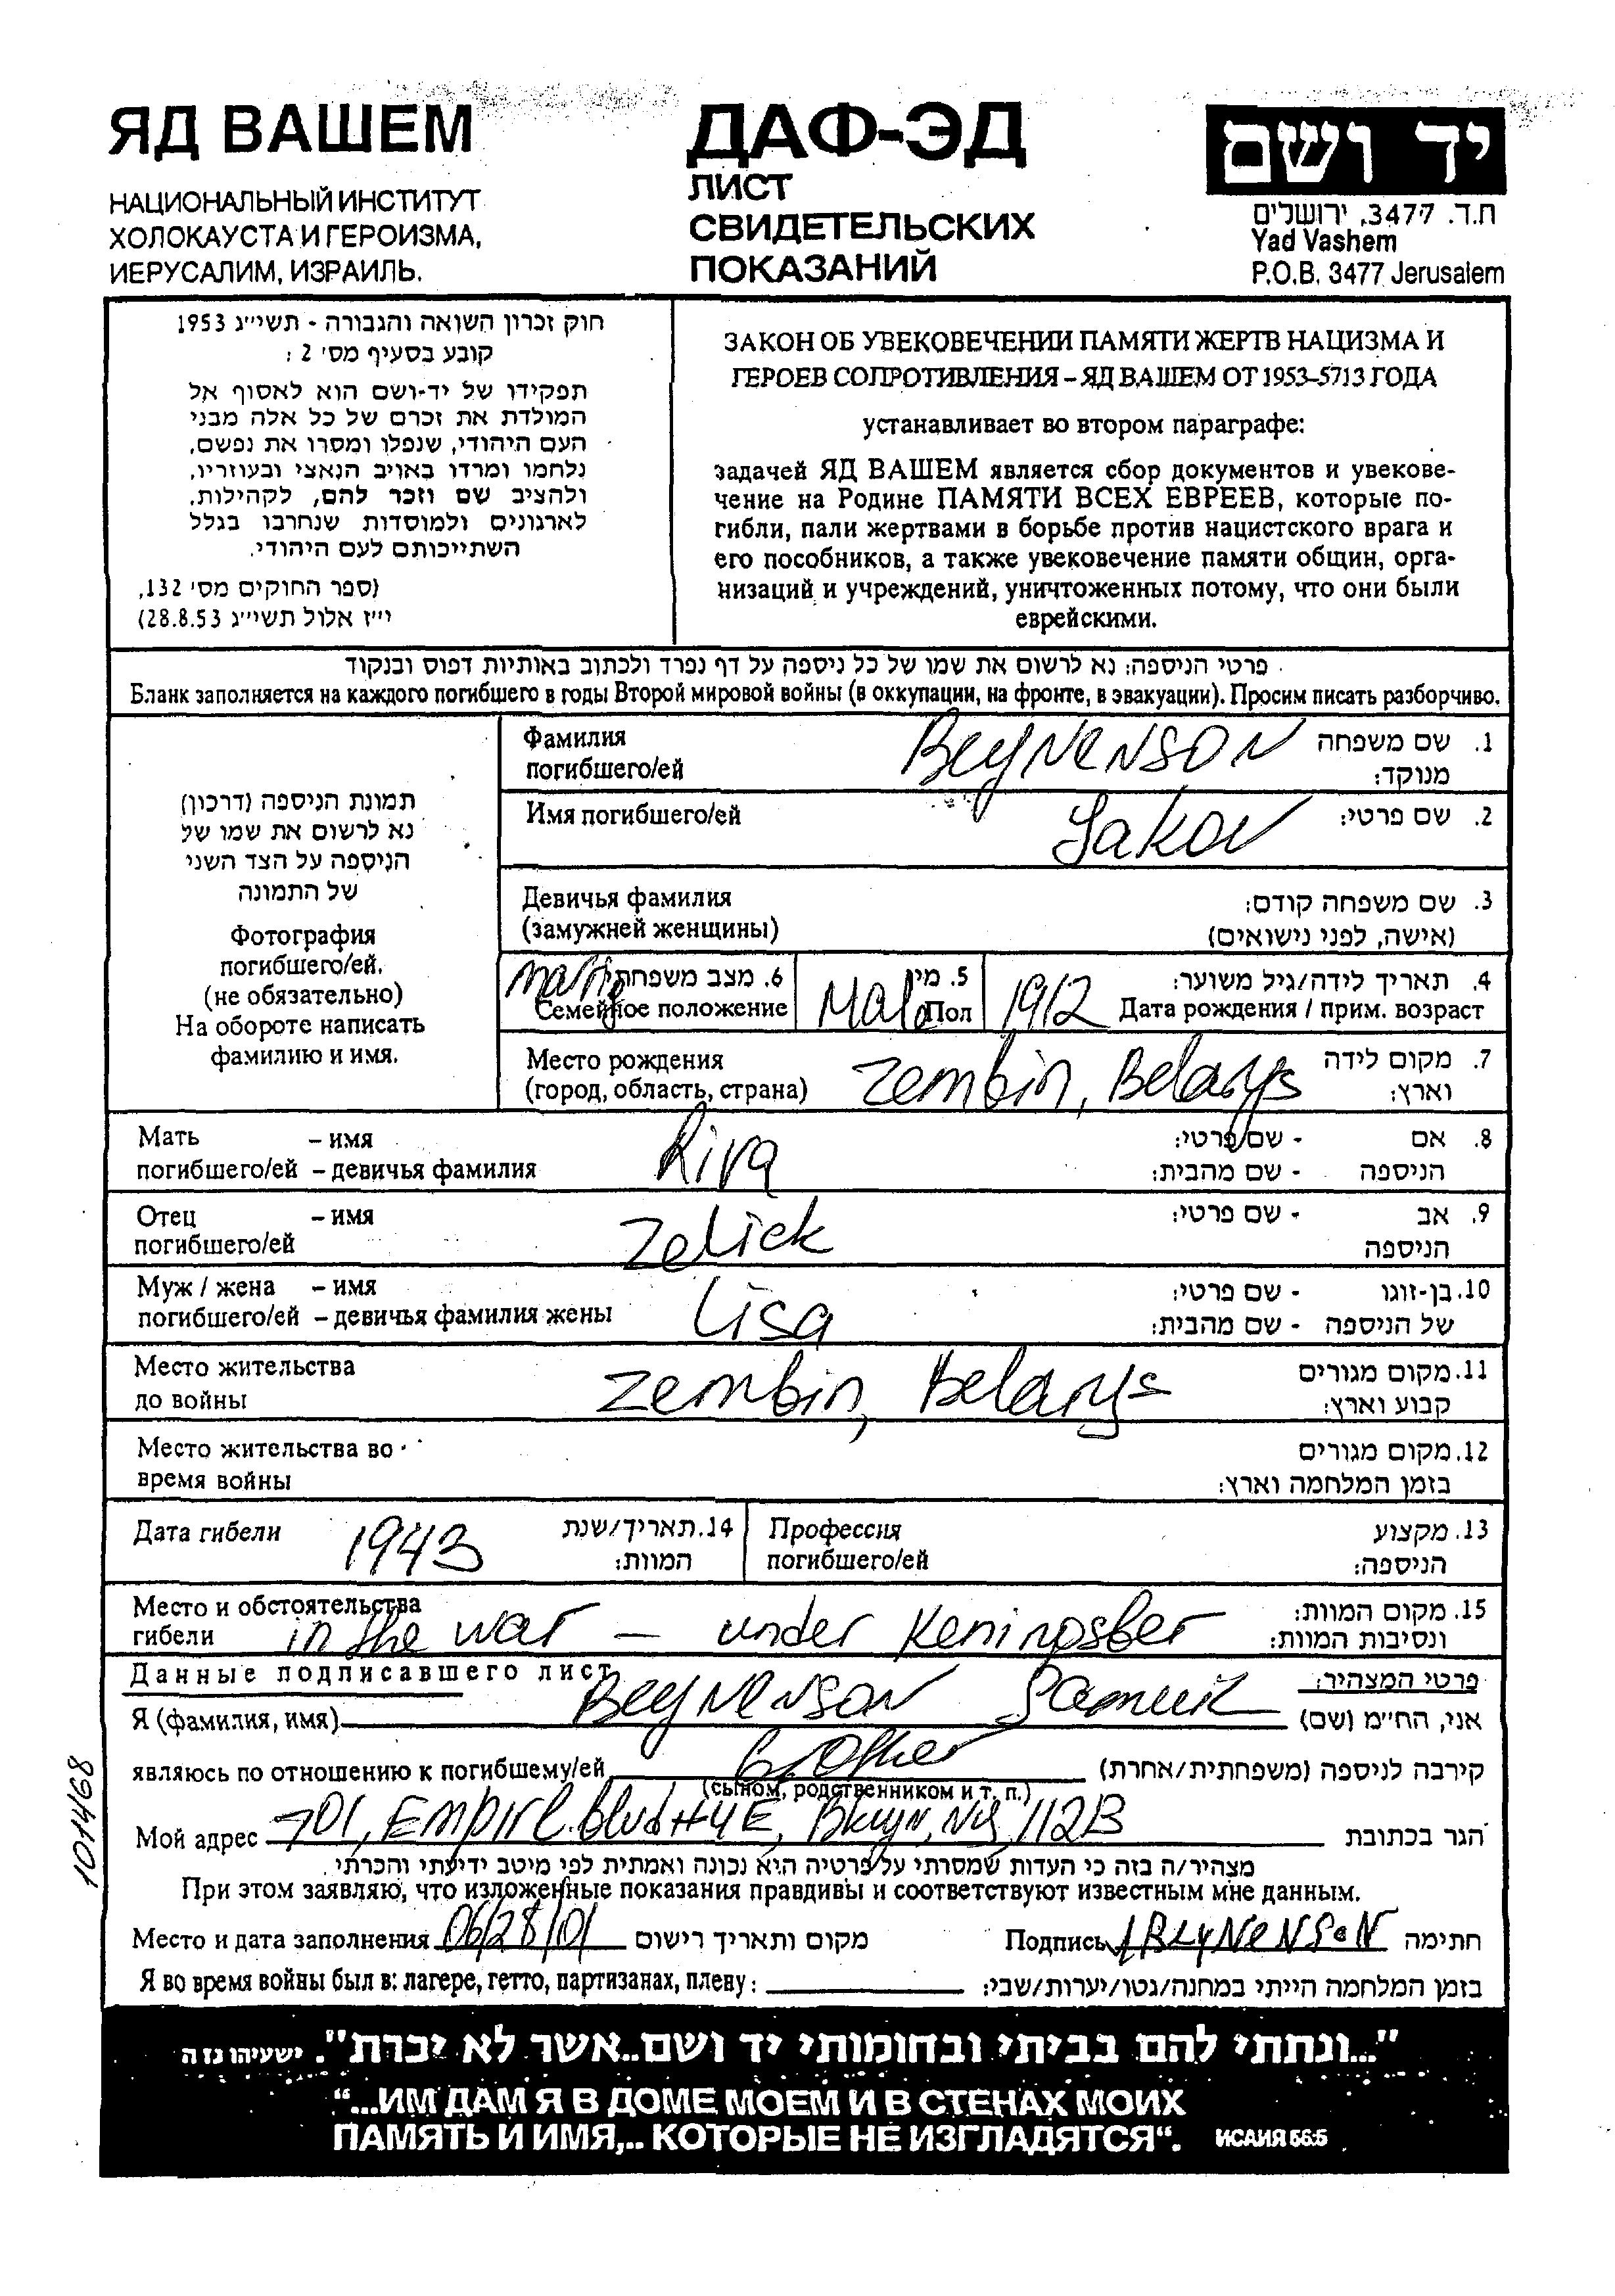 ЯД ВАШЕМ
НАЦИОНАЛЬНЫЙ ИНСТИТУТ
ХОЛОКАУСТА И ГЕРОИЗМА,
ИЕРУСАЛИМ, ИЗРАИЛЬ.
ДАФ-ЭД
ЛИСТ
СВИДЕТЕЛЬСКИХ
ПОКАЗАНИЙ
יד ושם
ת.ד. 3477, ירושלים
Yad Vashem
P.O.B. 3477 Jerusalem
חוק זכרון השואה והגבורה - תשי״ג 1953
קובע בסעיף מס׳ 2 :
תפקידו של יד-ושם הוא לאסוף אל
המולדת את זכרם של כל אלה מבני
העם היהודי, שנפלו ומסרו את נפשם,
נלחמו ומרדו באויב הנאצי ובעוזריו,
ולהציב שם וזכר להם, לקהילות,
לארגונים ולמוסדות שנחרבו בגלל
השתייכותם לעם היהודי.
(ספר החוקים מס׳ 132,
י״ז אלול תשי״ג 28.8.53)
ЗАКОН ОБ УВЕКОВЕЧЕНИИ ПАМЯТИ ЖЕРТВ НАЦИЗМА И
ГЕРОЕВ СОПРОТИВЛЕНИЯ – ЯД ВАШЕМ ОТ 1953-5713 ГОДА
устанавливает во втором параграфе:
задачей ЯД ВАШЕМ является сбор документов и увекове-
чение на Родине ПАМЯТИ ВСЕХ ЕВРЕЕВ, которые по-
гибли, пали жертвами в борьбе против нацистского врага и
его пособников, а также увековечение памяти общин, орга-
низаций и учреждений, уничтоженных потому, что они были
еврейскими.
פרטי הניספה: נא לרשום את שמו של כל ניספה על דף נפרד ולכתוב באותיות דפוס ובנקוד
Бланк заполняется на каждого погибшего в годы Второй мировой войны (в оккупации, на фронте, в эвакуации). Просим писать разборчиво.
תמונת הניספה (דרכון)
נא לרשום את שמו של
הניספה על הצד השני
של התמונה
Фотография
погибшего/ей.
(не обязательно)
На обороте написать
фамилию и имя.
Фамилия BeyNeNSON 1. שם משפחה
погибшего/ей מנוקד:
Имя погибшего/ей Jakov 2. שם פרטי:
Девичья фамилия 3. שם משפחה קודם:
(замужней женщины) (אישה, לפני נישואים)
6. מצב משפחתי 5. מין 4. תאריך לידה/גיל משוער:
Семейное положение Male Пол 1912 Дата рождения / прим. возраст
Место рождения 7. מקום לידה
(город, область, страна) Zembin, Belarys וארץ:
Мать – имя Riva 8. אם - שם פרטי:
погибшего/ей – девичья фамилия הניספה - שם מהבית:
Отец – имя Zelick 9. אב - שם פרטי:
погибшего/ей הניספה
Муж / жена – имя Lisa 10. בן-זוגו - שם פרטי:
погибшего/ей – девичья фамилия жены של הניספה - שם מהבית:
Место жительства 11. מקום מגורים
до войны Zembin, Belarys קבוע וארץ:
Место жительства во 12. מקום מגורים
время войны בזמן המלחמה וארץ:
Дата гибели 1943 14. תאריך/שנת Профессия 13. מקצוע
המוות: погибшего/ей הניספה:
Место и обстоятельства 15. מקום המוות:
гибели in the war – under Keningsber ונסיבות המוות:
Данные подписавшего лист פרטי המצהיר:
Я (фамилия, имя) BeyNeNSON Samuil אני, הח״מ (שם)
являюсь по отношению к погибшему/ей brother קירבה לניספה (משפחתית/אחרת)
(сыном, родственником и т. п.)
Мой адрес 701, Empire.blvd #4E, Bklyn, Ny, 11213 הגר בכתובת
מצהיר/ה בזה כי העדות שמסרתי על פרטיה היא נכונה ואמתית לפי מיטב ידיעתי והכרתי.
При этом заявляю, что изложенные показания правдивы и соответствуют известным мне данным.
Место и дата заполнения 06/28/01 מקום ותאריך רישום Подпись BeyNeNSoN חתימה
Я во время войны был в: лагере, гетто, партизанах, плену: בזמן המלחמה הייתי במחנה/גטו/יערות/שבי:
"...ונתתי להם בביתי ובחומותי יד ושם..אשר לא יכרת". ישעיהו נז ה
“...ИМ ДАМ Я В ДОМЕ МОЕМ И В СТЕНАХ МОИХ
ПАМЯТЬ И ИМЯ,.. КОТОРЫЕ НЕ ИЗГЛАДЯТСЯ“. ИСАИЯ 56:5
101468